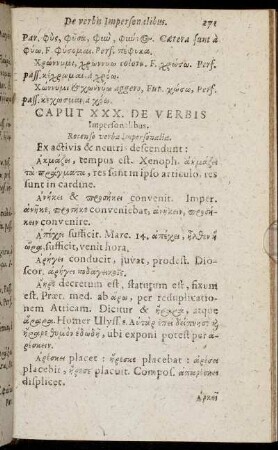 De verbis Impersonalibus. 271
Par. φὺς, φῦσα, φιω, φιώτ. Cætera sunt à
φύω. F. φύσομαι. Perf. πέφυκα.
Χρώννυμι, χρώννυω coloro. F. χρώσω. Perf.
pass. κέχρωμαι à χρόω.
Χώννυμι & χωννύω aggero, Fut. χώσω, Perf.
pass. κέχωσμαι à χόω.
CAPUT XXX. DE VERBIS
Impersonalibus.
Recenso verba impersonalia.
Ex activis & neutris descendunt:
Ακμάζει, tempus est. Xenoph. ἀκμάζει
τὰ πράγματα, res sunt in ipso articulo, res
sunt in cardine.
Ανήκει & προσήκει convenit. Imper.
ἀνῆκε, προσῆκε conveniebat, ἀνήκειν, προσήκειν
convenire.
Απέχει sufficit. Marc. 14. ἀπέχει, ἦλθεν ἡ
ὥρα. sufficit, venit hora.
Αρήγει conducit, juvat, prodest. Dioscor.
ἀρήγει ποδαγρικοῖς.
decretum est, statutum est, fixum
est. Præt. med. ab αρω, per reduplicationem
Atticam. Dicitur & ἤραρα, atque
ἄραρα. Homer Ulyss. ε. Αυτὰρ ἐπεὶ δείπνησε &
ἤραρε θυμὸν ἐδωδῇ, ubi exponi potest par
ἀρέσκειν.
Αρέσκει placet: ἤρεσκε placebat: ἀρέσει
placebit, ἤρεσε placuit. Compos. ἀπαρέσκει
displicet.
Αρκεῖ